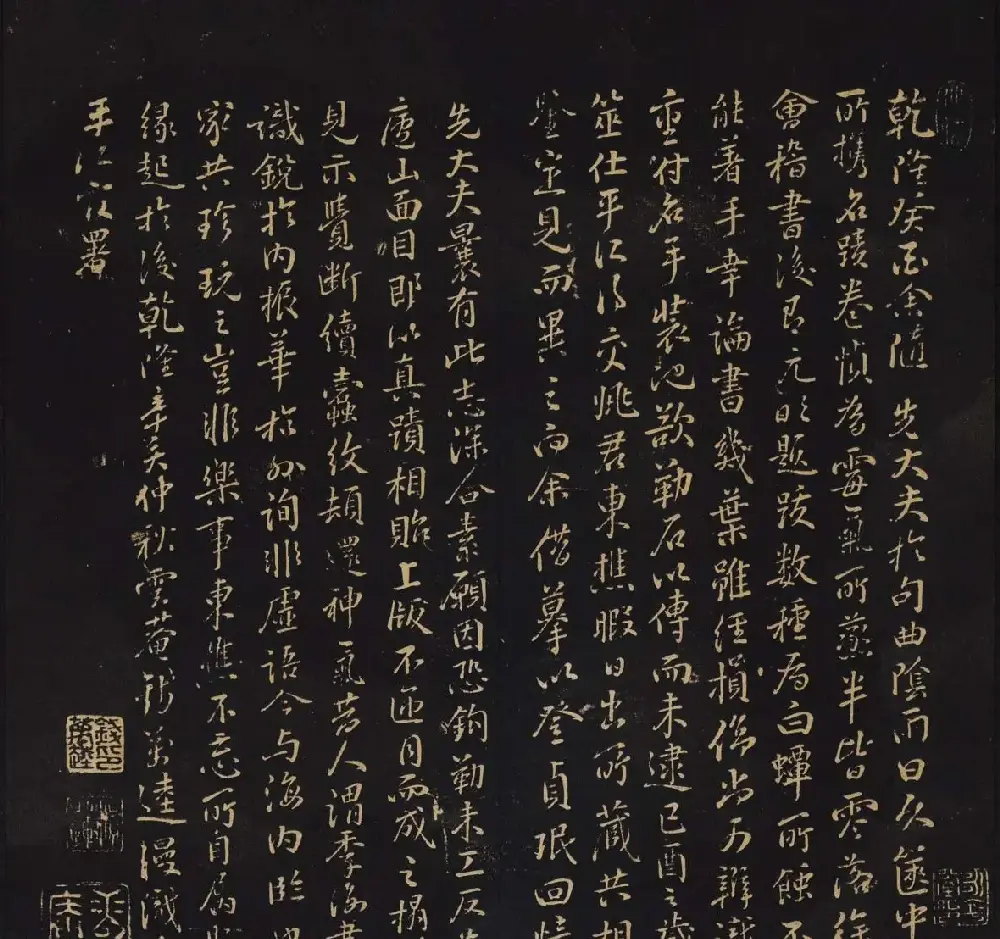 乾隆癸酉余隨 先大夫於句曲陰雨日久篋中
所攜名蹟卷幀為霉氣所蒸半皆零落徐
會稽書後有元明題跋數種為白蟫所蝕不
能著手幸論書幾葉雖經損傷尚可辨識
重付名手裝池欲勒石以傳而未逮己酉之歲
筮仕平江得交姚君東樵暇日出所藏共相
鑒定見而異之向余借摹以登貞珉回憶
先大夫曩有此志深合素願因恐鉤勒未工反
廬山面目即以真蹟相貽上版不匝月而成之搨
見示覺斷續蠹紋頓還神氣昔人謂季海書
識銳於內振華於外詢非虛語今与海內臨
家共珍玩之豈非樂事東樵不忘所自屬
緣起於後乾隆辛亥仲秋雲菴錢萬逵漫識
平江官署